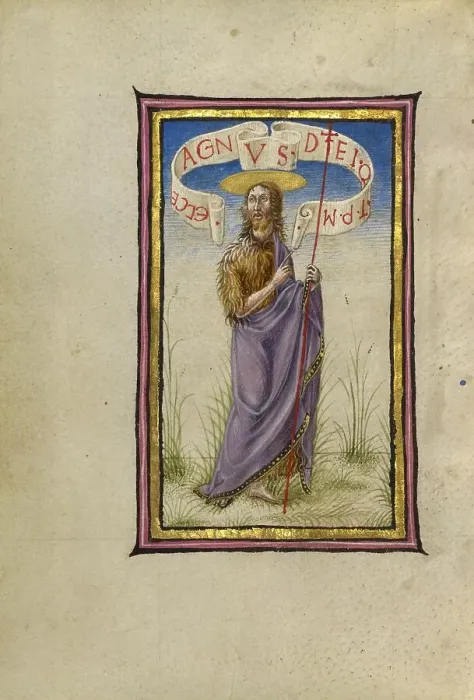 ·ECCE AGNVS·DEI·Q T·P·M